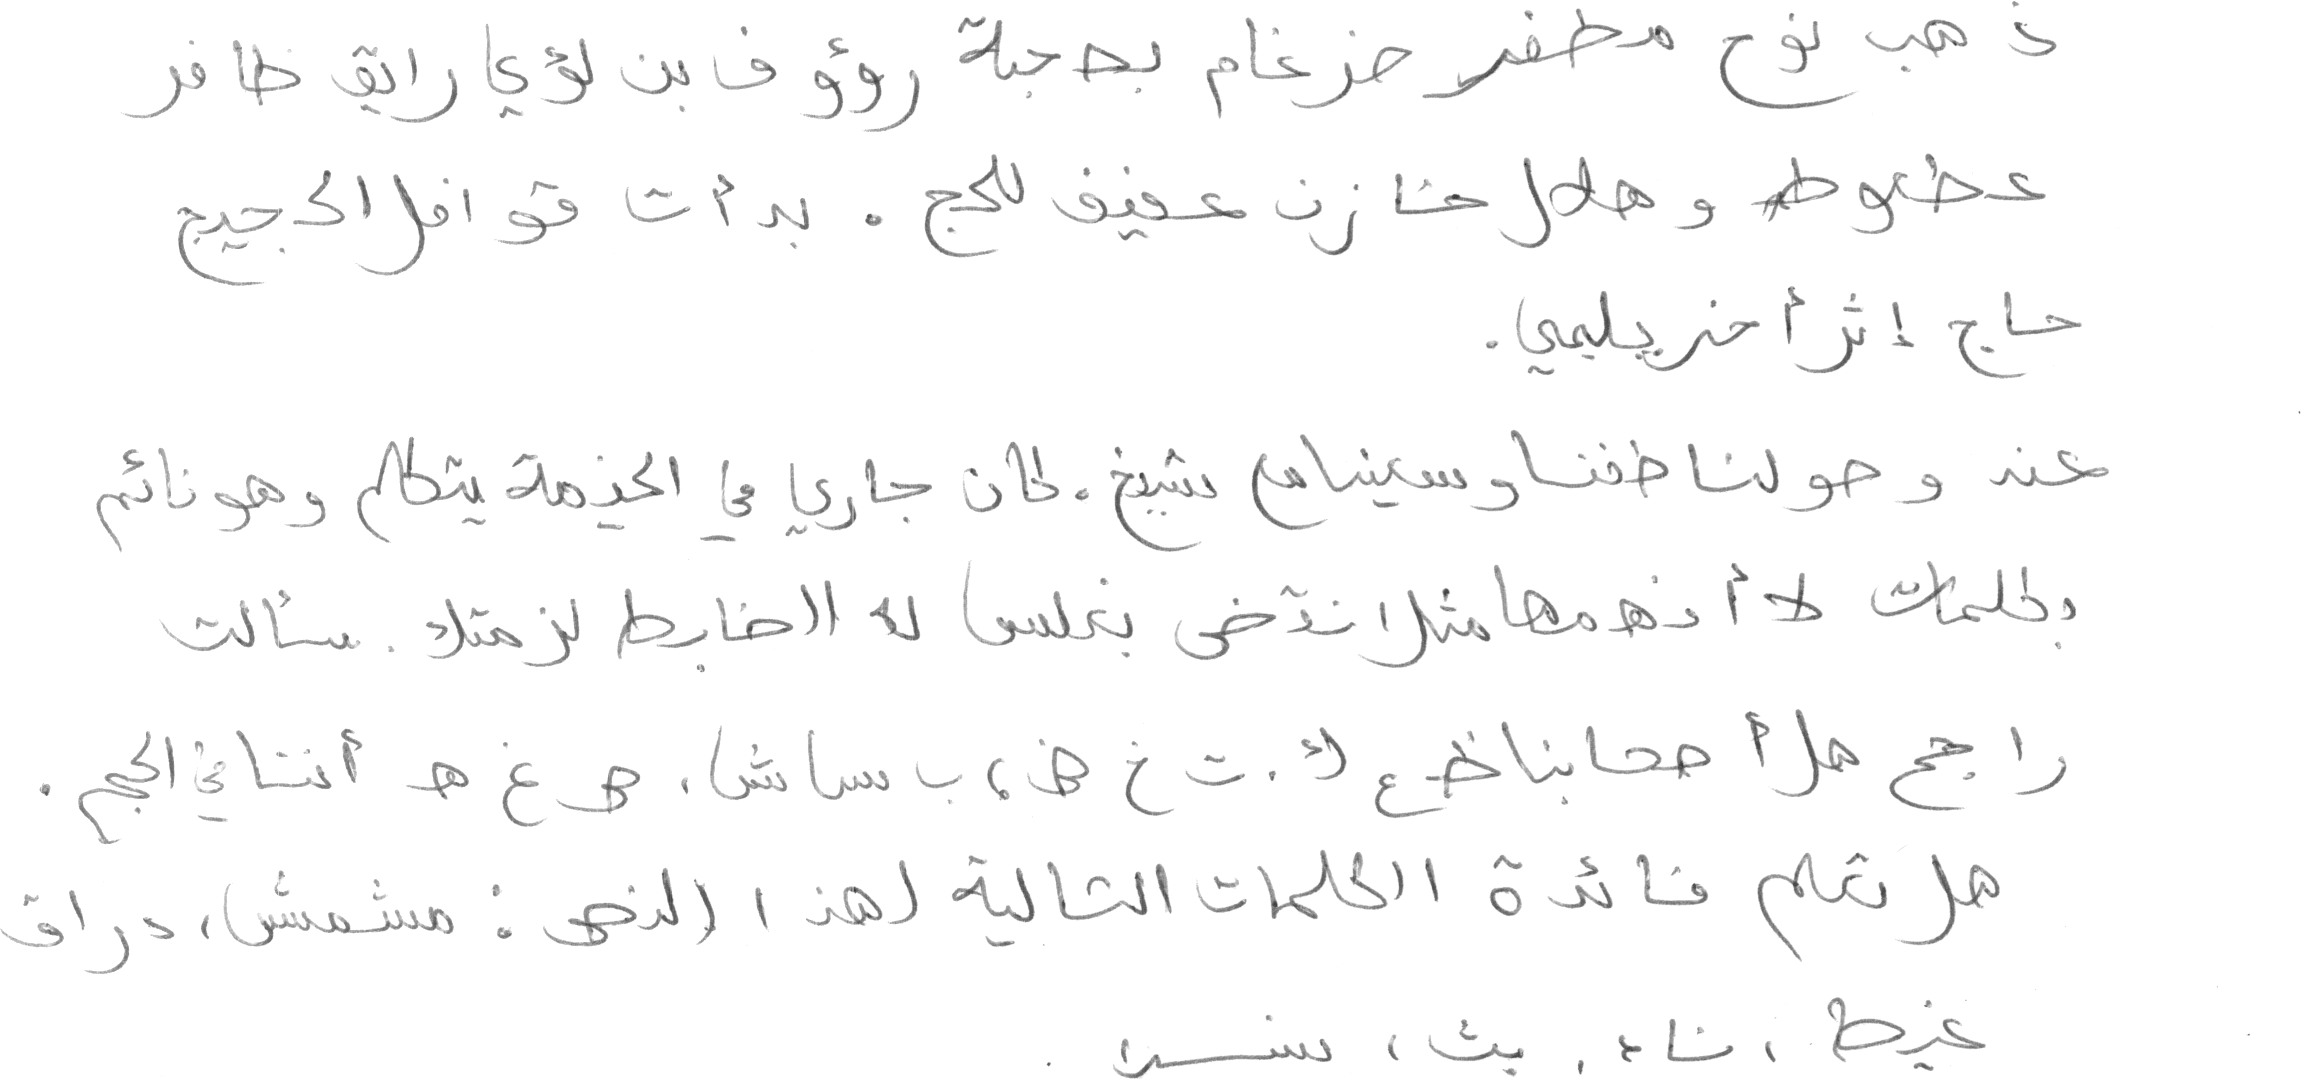 ذهب نوح مظفر ضرغام بصحبة رؤوف بن لؤي رائق ظافر
عضوظ وهلال خازن عفيف للحج. بدأت قوافل الحجيج
حاج إثر أخر يلبي.
عند وصولنا ضفنا وسينا مع شيخ. كان جاري في الخيمة يتكلم وهو نائم
بكلمات لا أفهمها مثلا نقض بغلس له الضابط لزمتك. سألت
راجح هل أصحابنا ظ ع ك. ث خ ض، ب ساشا، ص غ هـ أتتنا في الحج.
هل تعلم فائدة الكلمات التالية لهذا النص: مشمش، دراق
غيظ، شاه، بث، نسر.